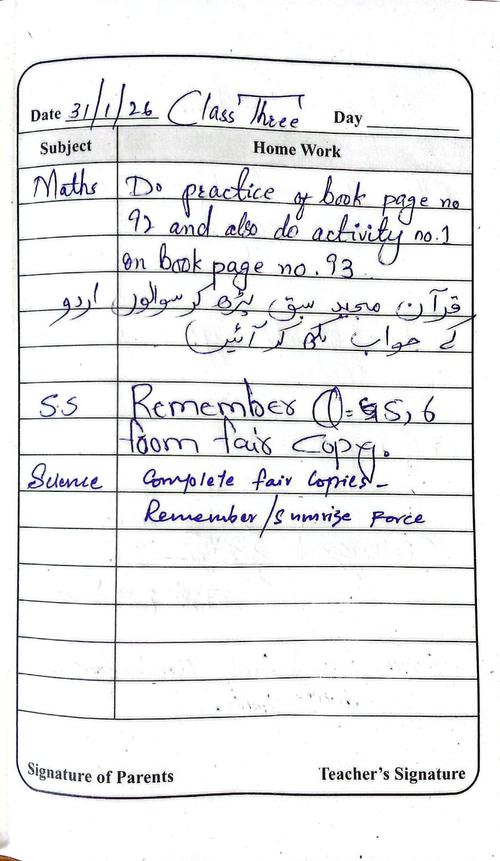 Date 31/1/26 Class Three Day
Subject Home Work
Maths Do practice of book page no
92 and also do activity no.1
on book page no.93
اردو قرآن مجید سبق پڑھ کر سوالوں
کے جواب لکھ کر آئیں
S.S Remember Q= 5,6
from fair copy.
Science Complete fair copies-
Remember/Sumrize Force
Signature of Parents Teacher's Signature